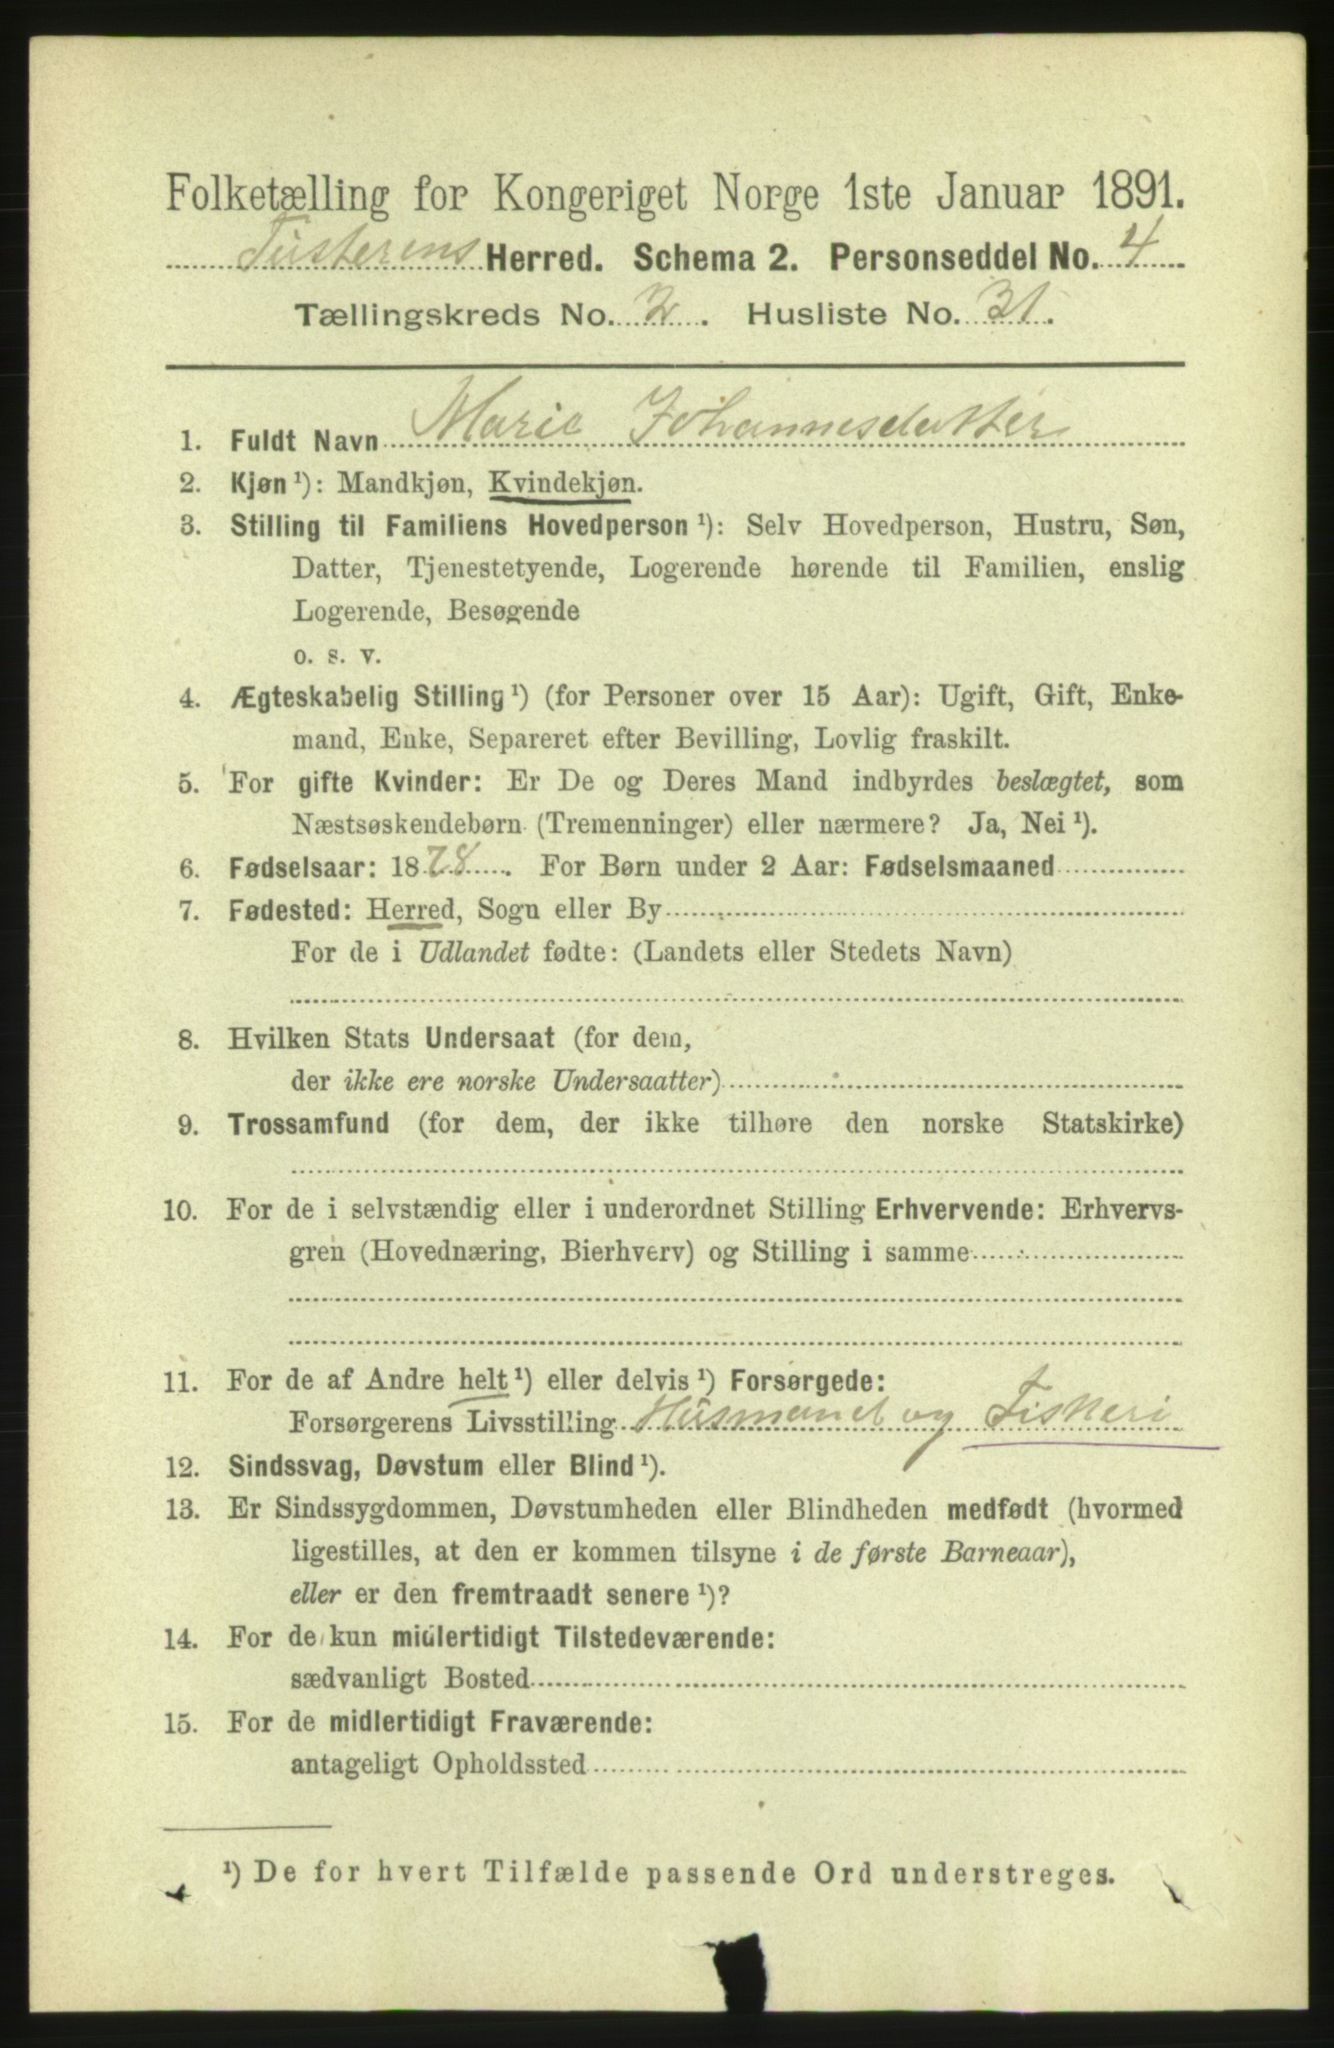 Folketælling for Kongeriget Norge 1ste Januar 1891.
Tusterens Herred. Schema 2. Personseddel No. 4
Tællingskreds No. 2. Husliste No. 31.
1. Fuldt Navn Marie Johannesdatter
2. Kjøn ¹): Mandkjøn, Kvindekjøn.
3. Stilling til Familiens Hovedperson ¹): Selv Hovedperson, Hustru, Søn,
Datter, Tjenestetyende, Logerende hørende til Familien, enslig
Logerende, Besøgende
o. s. v.
4. Ægteskabelig Stilling ¹) (for Personer over 15 Aar): Ugift, Gift, Enke-
mand, Enke, Separeret efter Bevilling, Lovlig fraskilt.
5. For gifte Kvinder: Er De og Deres Mand indbyrdes beslægtet, som
Næstsøskendebørn (Tremenninger) eller nærmere? Ja, Nei ¹).
6. Fødselsaar: 1878. For Børn under 2 Aar: Fødselsmaaned
7. Fødested: Herred, Sogn eller By
For de i Udlandet fødte: (Landets eller Stedets Navn)
8. Hvilken Stats Undersaat (for dem,
der ikke ere norske Undersaatter)
9. Trossamfund (for dem, der ikke tilhøre den norske Statskirke)
10. For de i selvstændig eller i underordnet Stilling Erhvervende: Erhvervs-
gren (Hovednæring, Bierhverv) og Stilling i samme
11. For de af Andre helt ¹) eller delvis ¹) Forsørgede:
Forsørgerens Livsstilling Husmand og Fiskeri
12. Sindssvag, Døvstum eller Blind ¹).
13. Er Sindssygdommen, Døvstumheden eller Blindheden medfødt (hvormed
ligestilles, at den er kommen tilsyne i de første Barneaar),
eller er den fremtraadt senere ¹)?
14. For de kun midlertidigt Tilstedeværende:
sædvanligt Bosted
15. For de midlertidigt Fraværende:
antageligt Opholdssted
¹) De for hvert Tilfælde passende Ord understreges.